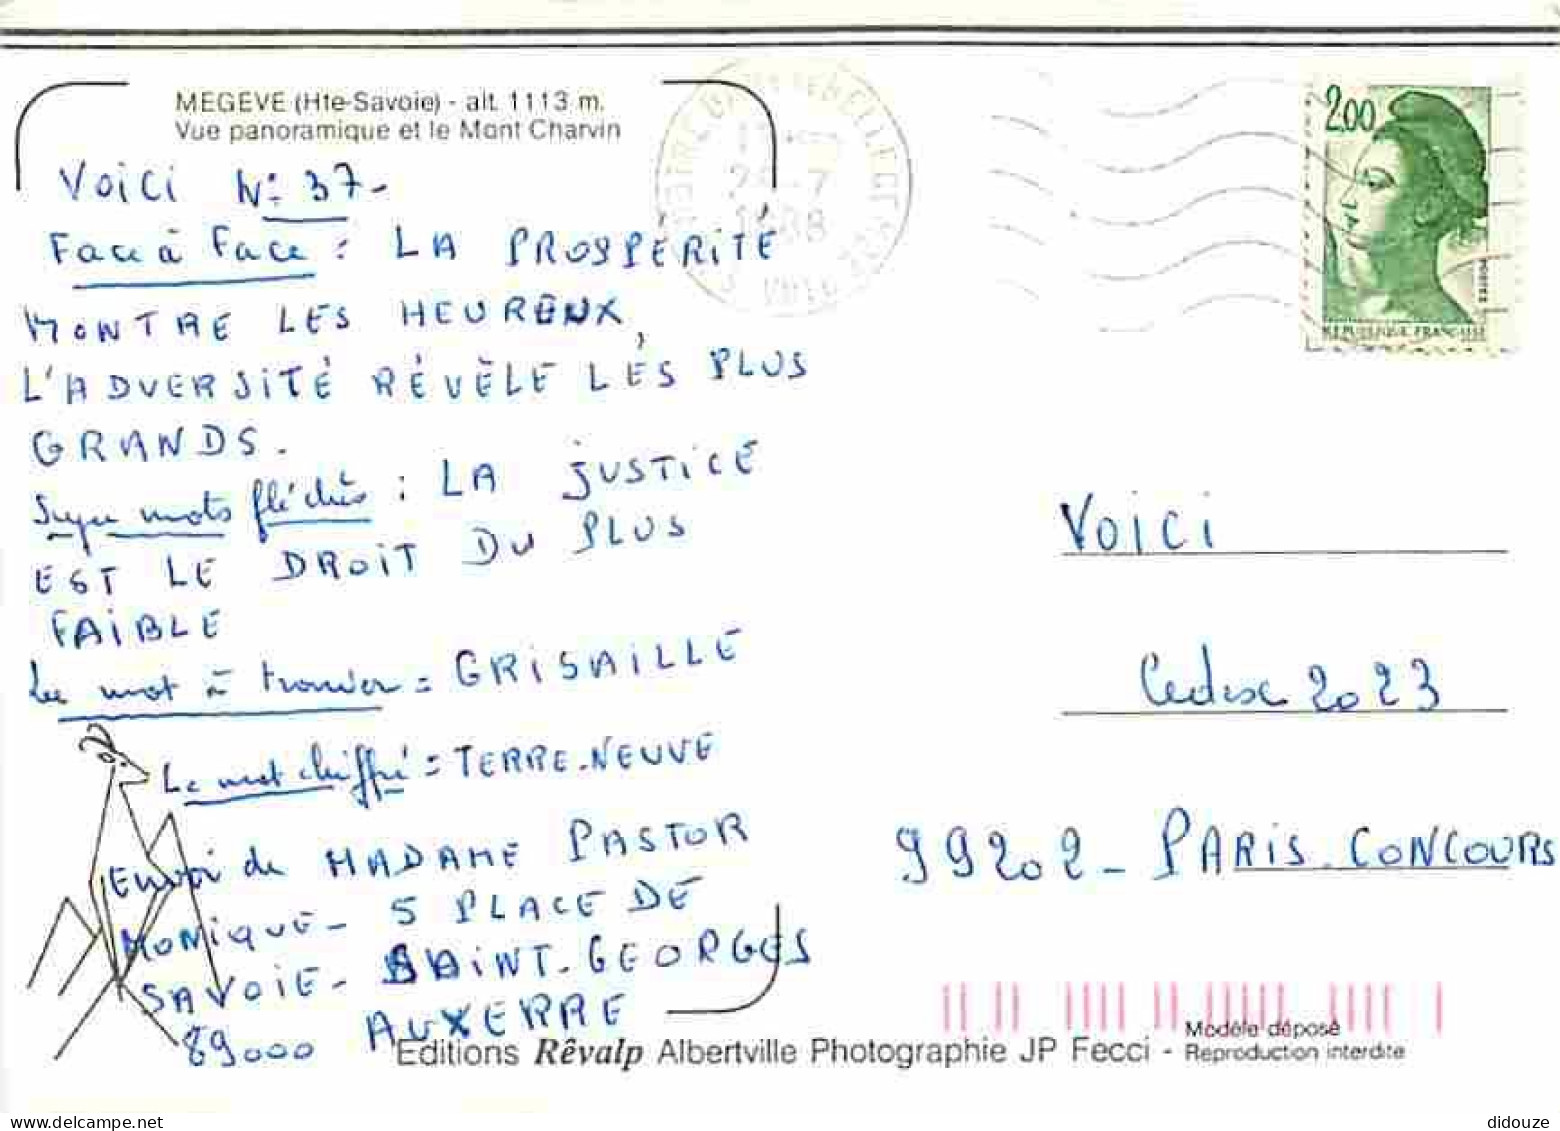 MEGEVE (Hte-Savoie) - alt. 1113 m.
Vue panoramique et le Mont Charvin
Voici N° 37-
Face à Face : LA PROSPÉRITÉ
MONTRE LES HEUREUX,
L'ADVERSITÉ RÉVÈLE LES PLUS
GRANDS.
Super mots fléchés : LA JUSTICE
EST LE DROIT DU PLUS
FAIBLE
Le mot à trouver = GRISAILLE
Le mot chiffré = TERRE-NEUVE
Envoi de MADAME PASTOR
MONIQUE - 5 PLACE DE
SAVOIE - SAINT-GEORGES
89000 AUXERRE
Editions Rêvalp Albertville Photographie JP Fecci -
Modèle déposé
Reproduction interdite
2.00
POSTES
REPUBLIQUE FRANÇAISE
Voici
Cedex 2023
99202 - PARIS-CONCOURS
didouze